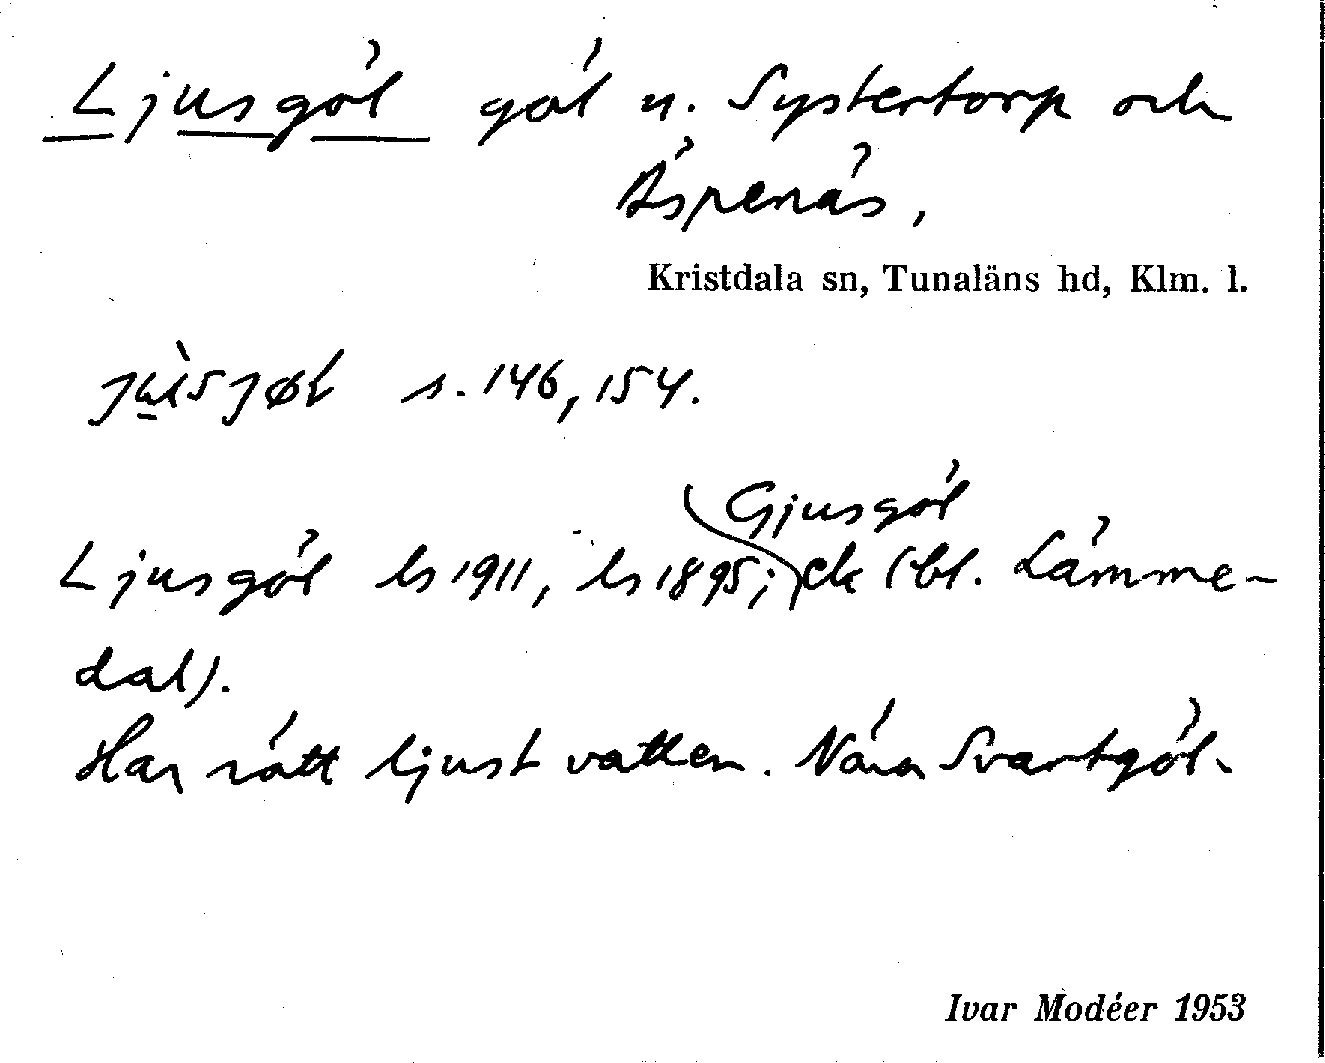 Ljusgöl göl u. Systertorp och
Äspenäs,
Kristdala sn, Tunaläns hd, Klm. l.
s. 146, 154.
Gjusgöl
Ljusgöl ls 1911, ls 1895; ek (bl. Lämme-
dal).
Har rätt ljust vatten. Nära Svartgöl.
Ivar Modéer 1953